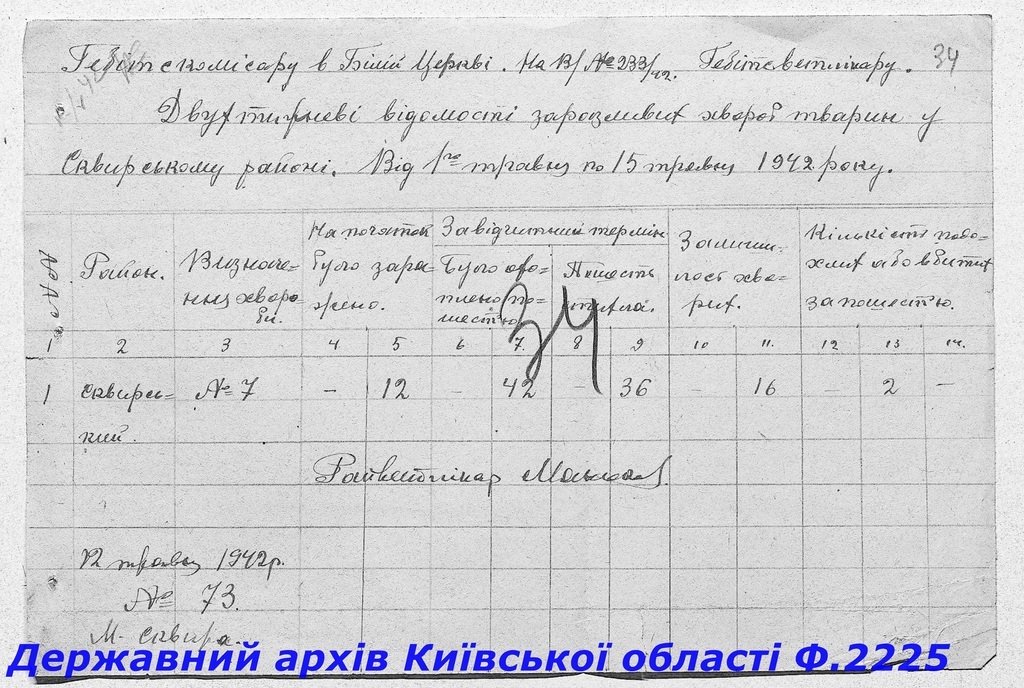 Гебітскомісару в Білій Церкві. На В/№233/42. Гебітсветлікару. 34
Двухтижневі відомості заразливих хвороб тварин у
Сквирському районі. Від 1го травня по 15 травня 1942 року.
№№
Район.
Визначення хвороби.
На початок було заражено.
За відчитний термін
Було охоплено пошестью
Пошесть
Залишилось хворих.
Кількість подохлих або вбитих за пошестью.
1 2 3 4 5 6 7. 8 9 10 11. 12 13 14.
34
1 Сквирсь- №7 – 12 – 42 – 36 – 16 2 –
кий.
Райветлікар
12 травня 1942р.
№ 73.
М. Сквира.
Державний архів Київської області Ф.2225